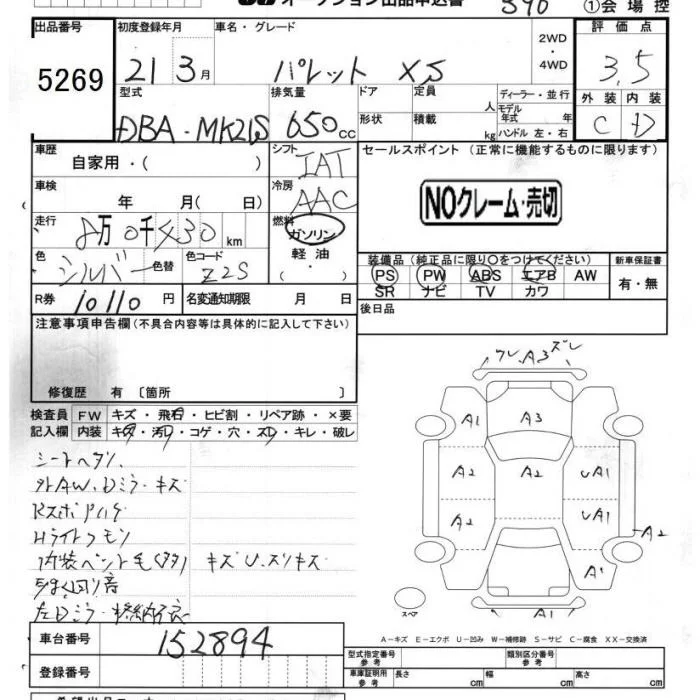 オークション出品申込書
390
①会場控
出品番号
5269
初度登録年月
21 3月
車名・グレード
パレット XS
2WD
・
4WD
評価点
3.5
外装 内装
C D
型式
DBA-MK21S
排気量
650cc
ドア
形状
定員
人
積載
kg
ディーラー・並行
モデル
年式 年
ハンドル 左・右
車歴
自家用・( )
シフト
IAT
セールスポイント(正常に機能するものに限ります)
NOクレーム・売切
車検
年 月( 日)
冷房
AAC
走行
8万0千430km
燃料
ガソリン
軽油
( ・ )
色
シルバー
色替
色コード
Z2S
装備品(純正品に限り○をつけてください)
PS PW ABS エアB AW
SR ナビ TV カワ
新車保証書
有・無
R券 10110円
名変通知期限 月 日
後日品
注意事項申告欄(不具合内容等は具体的に記入して下さい)
修復歴 有〔箇所 〕
検査員
記入欄
FW キズ・飛石・ヒビ割・リペア跡・×要
内装 キズ・汚れ・コゲ・穴・スレ・キレ・破レ
シートヘタリ
外AW、Dミラーキズ
Hライトクモリ
キズU、スリキズ
左Dミラー格納不良
A3 ズレ
A1 A3
A2 A2 UA1
A2 UA1
A2
A1
A1
スペア
車台番号 152894
登録番号
A-キズ E-エクボ U-凹み W-補修跡 S-サビ C-腐食 XX-交換済
型式指定番号
参考
類別区分番号
参考
車庫証明用
参考
長さ cm 幅 cm 高さ cm